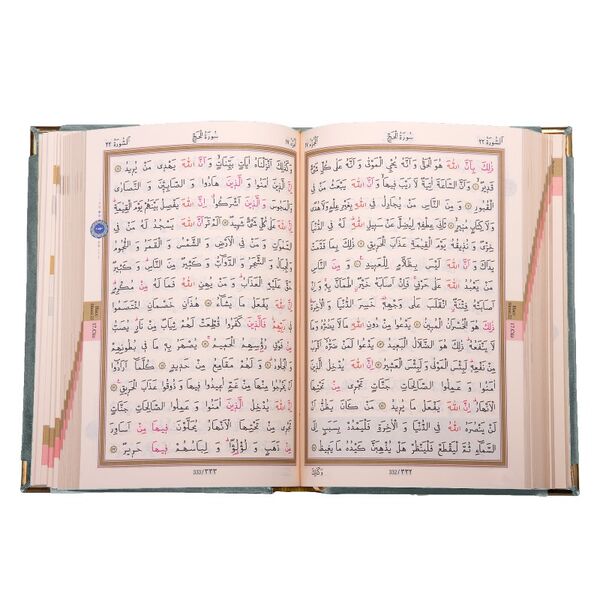 اَلسُّورَةُ ٢٢
سُورَةُ الْحَجِّ
اَلْجُزْءُ ١٧
ذٰلِكَ بِاَنَّ اللّٰهَ هُوَ الْحَقُّ وَ اَنَّهُ يُحْيِ الْمَوْتٰى وَ اَنَّهُ عَلٰى كُلِّ شَيْءٍ
قَدِيرٌ وَ اَنَّ السَّاعَةَ اٰتِيَةٌ لَا رَيْبَ فِيهَا وَ اَنَّ اللّٰهَ يَبْعَثُ مَنْ فِي
الْقُبُورِ وَ مِنَ النَّاسِ مَنْ يُجَادِلُ فِي اللّٰهِ بِغَيْرِ عِلْمٍ وَ لَا هُدًى
وَ لَا كِتَابٍ مُنِيرٍ ثَانِيَ عِطْفِهِ لِيُضِلَّ عَنْ سَبِيلِ اللّٰهِ لَهُ فِي الدُّنْيَا
خِزْيٌ وَ نُذِيقُهُ يَوْمَ الْقِيٰمَةِ عَذَابَ الْحَرِيقِ ذٰلِكَ بِمَا قَدَّمَتْ
يَدَاكَ وَ اَنَّ اللّٰهَ لَيْسَ بِظَلَّامٍ لِلْعَبِيدِ وَ مِنَ النَّاسِ
مَنْ يَعْبُدُ اللّٰهَ عَلٰى حَرْفٍ فَاِنْ اَصَابَهُ خَيْرٌ اطْمَاَنَّ بِهِ وَ اِنْ
اَصَابَتْهُ فِتْنَةٌ انْقَلَبَ عَلٰى وَجْهِهِ خَسِرَ الدُّنْيَا وَ الْاٰخِرَةَ
ذٰلِكَ هُوَ الْخُسْرَانُ الْمُبِينُ يَدْعُوا مِنْ دُونِ اللّٰهِ مَا لَا يَضُرُّهُ وَ مَا
لَا يَنْفَعُهُ ذٰلِكَ هُوَ الضَّلَالُ الْبَعِيدُ يَدْعُوا لَمَنْ ضَرُّهُ اَقْرَبُ
مِنْ نَفْعِهِ لَبِئْسَ الْمَوْلٰى وَ لَبِئْسَ الْعَشِيرُ اِنَّ اللّٰهَ يُدْخِلُ
الَّذِينَ اٰمَنُوا وَ عَمِلُوا الصَّالِحَاتِ جَنَّاتٍ تَجْرِي مِنْ تَحْتِهَا
الْاَنْهَارُ اِنَّ اللّٰهَ يَفْعَلُ مَا يُرِيدُ مَنْ كَانَ يَظُنُّ اَنْ
لَنْ يَنْصُرَهُ اللّٰهُ فِي الدُّنْيَا وَ الْاٰخِرَةِ فَلْيَمْدُدْ بِسَبَبٍ اِلَى
السَّمَاءِ ثُمَّ لْيَقْطَعْ فَلْيَنْظُرْ هَلْ يُذْهِبَنَّ كَيْدُهُ مَا يَغِيظُ
332/٣٣٢
وَكَذٰلِكَ
17.Cüz
اَلسُّورَةُ ٢٢
سُورَةُ الْحَجِّ
وَ كَذٰلِكَ اَنْزَلْنَاهُ اٰيَاتٍ بَيِّنَاتٍ وَ اَنَّ اللّٰهَ يَهْدِي مَنْ يُرِيدُ
اِنَّ الَّذِينَ اٰمَنُوا وَ الَّذِينَ هَادُوا وَ الصَّابِـِٔينَ وَ النَّصَارٰى
وَ الْمَجُوسَ وَ الَّذِينَ اَشْرَكُوا اِنَّ اللّٰهَ يَفْصِلُ بَيْنَهُمْ يَوْمَ الْقِيٰمَةِ
اِنَّ اللّٰهَ عَلٰى كُلِّ شَيْءٍ شَهِيدٌ اَلَمْ تَرَ اَنَّ اللّٰهَ يَسْجُدُ لَهُ مَنْ فِي
السَّمٰوَاتِ وَ مَنْ فِي الْاَرْضِ وَ الشَّمْسُ وَ الْقَمَرُ وَ النُّجُومُ
وَ الْجِبَالُ وَ الشَّجَرُ وَ الدَّوَابُّ وَ كَثِيرٌ مِنَ النَّاسِ وَ كَثِيرٌ
حَقَّ عَلَيْهِ الْعَذَابُ وَ مَنْ يُهِنِ اللّٰهُ فَمَا لَهُ مِنْ مُكْرِمٍ
اِنَّ اللّٰهَ يَفْعَلُ مَا يَشَاءُ هٰذَانِ خَصْمَانِ اخْتَصَمُوا
فِي رَبِّهِمْ فَالَّذِينَ كَفَرُوا قُطِّعَتْ لَهُمْ ثِيَابٌ مِنْ نَارٍ يُصَبُّ
مِنْ فَوْقِ رُؤُسِهِمُ الْحَمِيمُ يُصْهَرُ بِهِ مَا فِي بُطُونِهِمْ
وَ الْجُلُودُ وَ لَهُمْ مَقَامِعُ مِنْ حَدِيدٍ كُلَّمَا اَرَادُوا
اَنْ يَخْرُجُوا مِنْهَا مِنْ غَمٍّ اُعِيدُوا فِيهَا وَ ذُوقُوا عَذَابَ الْحَرِيقِ
اِنَّ اللّٰهَ يُدْخِلُ الَّذِينَ اٰمَنُوا وَ عَمِلُوا الصَّالِحَاتِ جَنَّاتٍ
تَجْرِي مِنْ تَحْتِهَا الْاَنْهَارُ يُحَلَّوْنَ فِيهَا مِنْ اَسَاوِرَ
مِنْ ذَهَبٍ وَ لُؤْلُؤًا وَ لِبَاسُهُمْ فِيهَا حَرِيرٌ
333/٣٣٣
17.Cüz